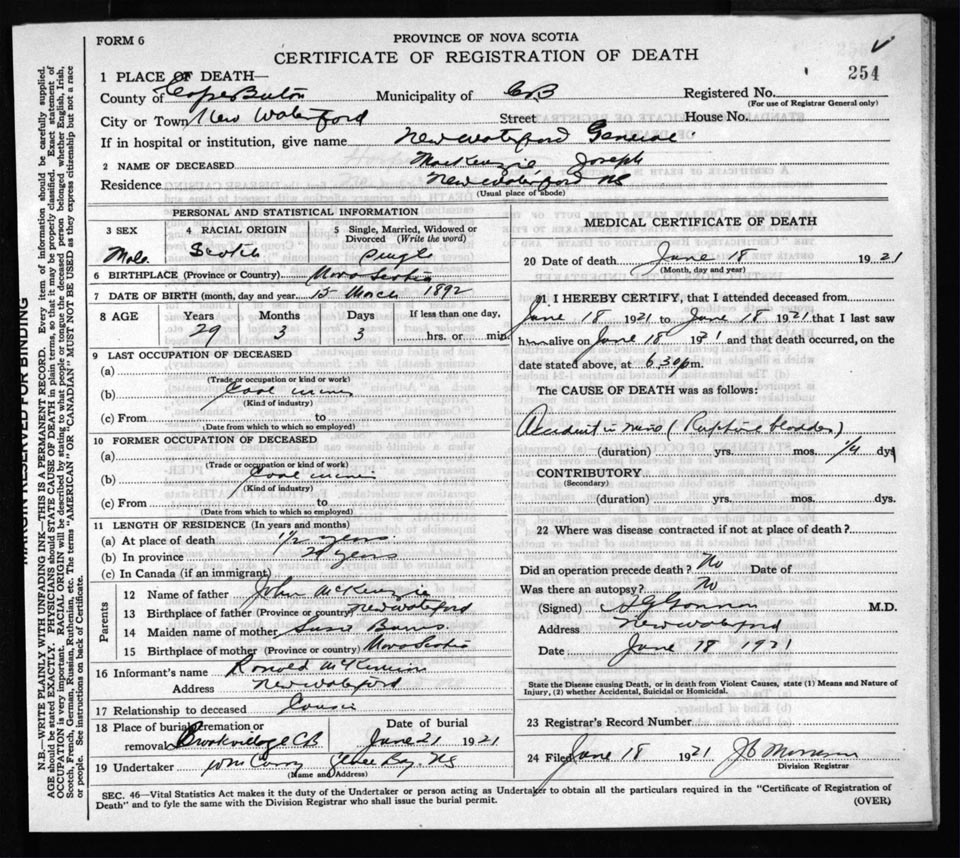 FORM 6
PROVINCE OF NOVA SCOTIA
CERTIFICATE OF REGISTRATION OF DEATH
254
1 PLACE OF DEATH—
County of Cape Breton Municipality of C.B Registered No.
(For use of Registrar General only)
City or Town New Waterford Street House No.
If in hospital or institution, give name New Waterford General
2 NAME OF DECEASED MacKenzie Joseph
Residence New Waterford NS
(Usual place of abode)
PERSONAL AND STATISTICAL INFORMATION
3 SEX Male
4 RACIAL ORIGIN Scotch
5 Single, Married, Widowed or Divorced (Write the word) Single
6 BIRTHPLACE (Province or Country) Nova Scotia
7 DATE OF BIRTH (month, day and year) 15 March 1892
8 AGE Years Months Days If less than one day,
29 3 3 hrs. or min.
9 LAST OCCUPATION OF DECEASED
(a)
(Trade or occupation or kind or work)
(b) Coal mine
(Kind of industry)
(c) From to
(Date from which to which so employed)
10 FORMER OCCUPATION OF DECEASED
(a)
(Trade or occupation or kind or work)
(b) Coal mine
(Kind of industry)
(c) From to
(Date from which to which so employed)
11 LENGTH OF RESIDENCE (In years and months)
(a) At place of death years
(b) In province 29 years
(c) In Canada (if an immigrant)
Parents
12 Name of father John McKenzie
13 Birthplace of father (Province or country) New Waterford
14 Maiden name of mother
15 Birthplace of mother (Province or country) Nova Scotia
16 Informant's name Ronald McKenzie
Address New Waterford
17 Relationship to deceased Cousin
18 Place of burial, cremation or removal C.B Date of burial June 21 1921
19 Undertaker Wm Curry Glace Bay NS
(Name and Address)
MEDICAL CERTIFICATE OF DEATH
20 Date of death June 18 1921
(Month, day and year)
21 I HEREBY CERTIFY, that I attended deceased from
June 18 1921 to June 18 1921 that I last saw
him alive on June 18 1921 and that death occurred, on the
date stated above, at 6 30 p m.
The CAUSE OF DEATH was as follows:
Accident in mine (Rupture bladder)
(duration) yrs. mos. 1/4 dys
CONTRIBUTORY
(Secondary)
(duration) yrs. mos. dys.
22 Where was disease contracted if not at place of death?
Did an operation precede death? No Date of
Was there an autopsy? No
(Signed) M.D.
Address New Waterford
Date June 18 1921
State the Disease causing Death, or in death from Violent Causes, state (1) Means and Nature of
Injury, (2) whether Accidental, Suicidal or Homicidal.
23 Registrar's Record Number
24 Filed June 18 1921
Division Registrar
SEC. 46—Vital Statistics Act makes it the duty of the Undertaker or person acting as Undertaker to obtain all the particulars required in the "Certificate of Registration of
Death" and to fyle the same with the Division Registrar who shall issue the burial permit. (OVER)
MARGIN RESERVED FOR BINDING
N.B.—WRITE PLAINLY WITH UNFADING INK—THIS IS A PERMANENT RECORD. Every item of information should be carefully supplied.
AGE should be stated EXACTLY. PHYSICIANS should STATE CAUSE OF DEATH in plain terms, so that it may be properly classified. Exact statement of
OCCUPATION is very important. RACIAL ORIGIN will be described by stating to what people or tongue the deceased person belonged whether English, Irish,
Scotch, French, German, Russian, Ruthenian, etc. The terms "AMERICAN" OR "CANADIAN" MUST NOT BE USED as they express citizenship but not a race
or people. See instructions on back of Certificate.